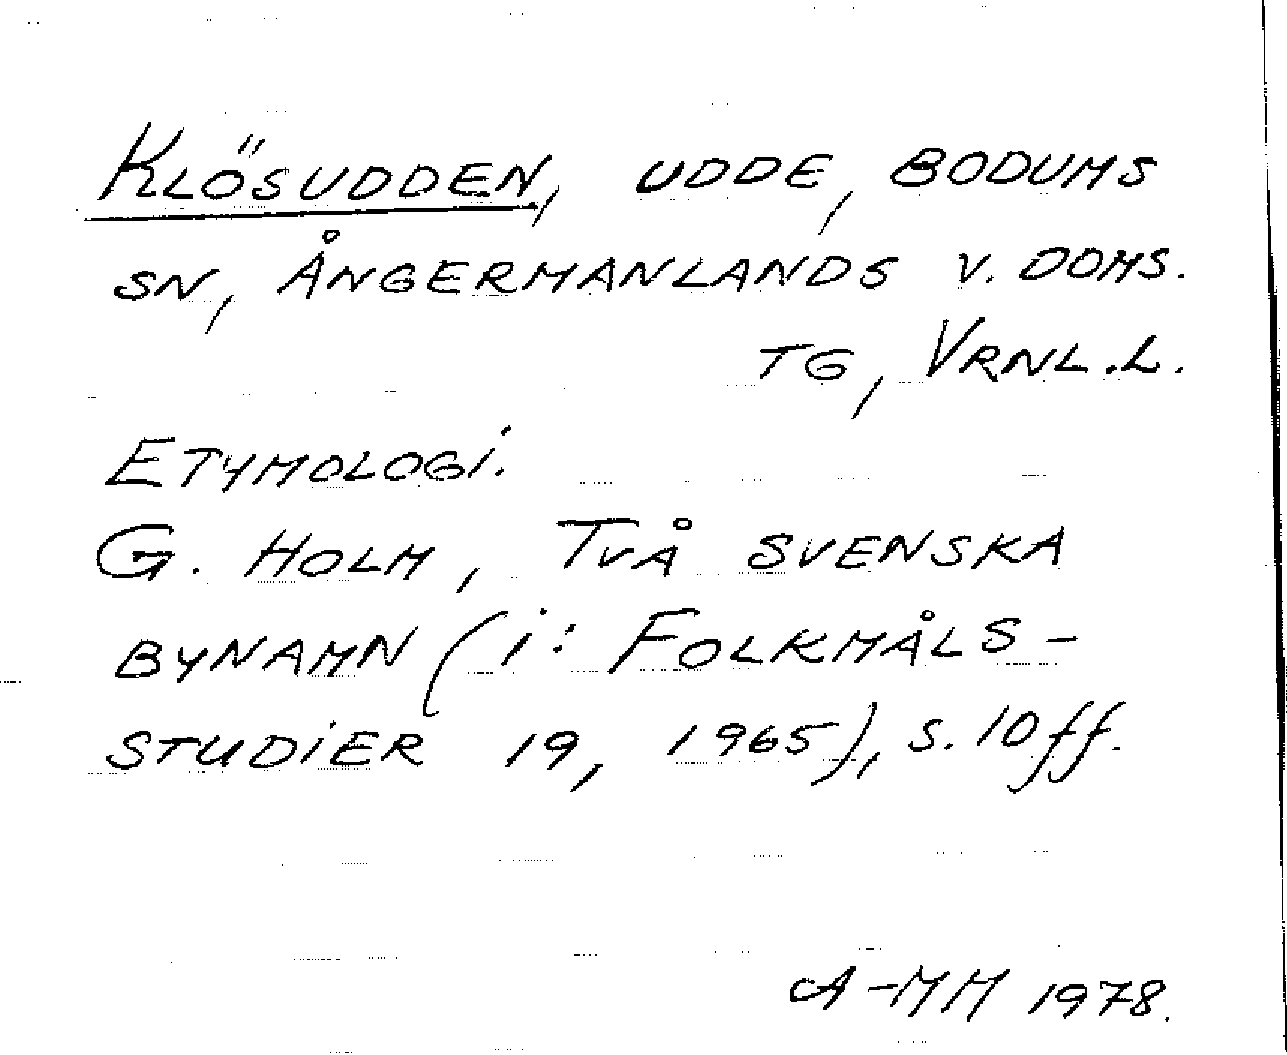 KLÖSUDDEN, UDDE, BODUMS
SN, ÅNGERMANLANDS V. DOMS.
TG, VRNL.L.
ETYMOLOGI.
G. HOLM, TVÅ SVENSKA
BYNAMN (i: FOLKMÅLS-
STUDIER 19, 1965), S. 10 ff.
A-MM 1978.